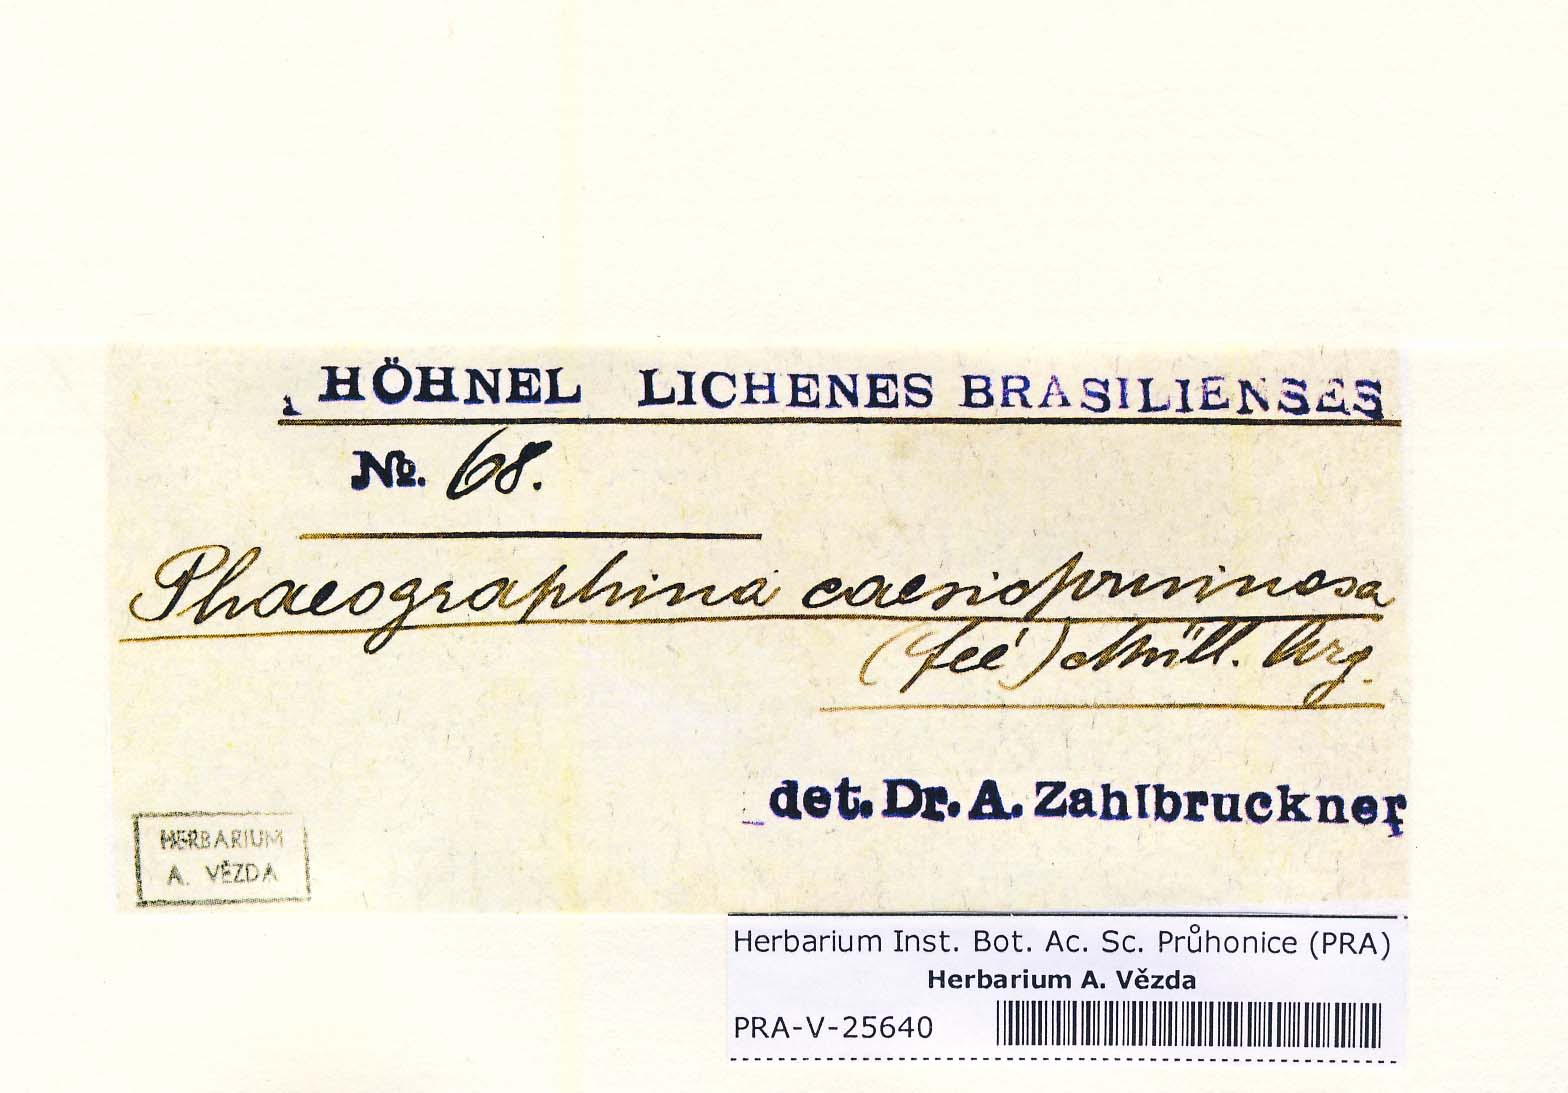 HÖHNEL LICHENES BRASILIENSES
No. 68.
Phaeographina caesiopruinosa
(Feé) Müll. Arg.
det. Dr. A. Zahlbruckner
HERBARIUM
A. VĚZDA
Herbarium Inst. Bot. Ac. Sc. Průhonice (PRA)
Herbarium A. Vězda
PRA-V-25640